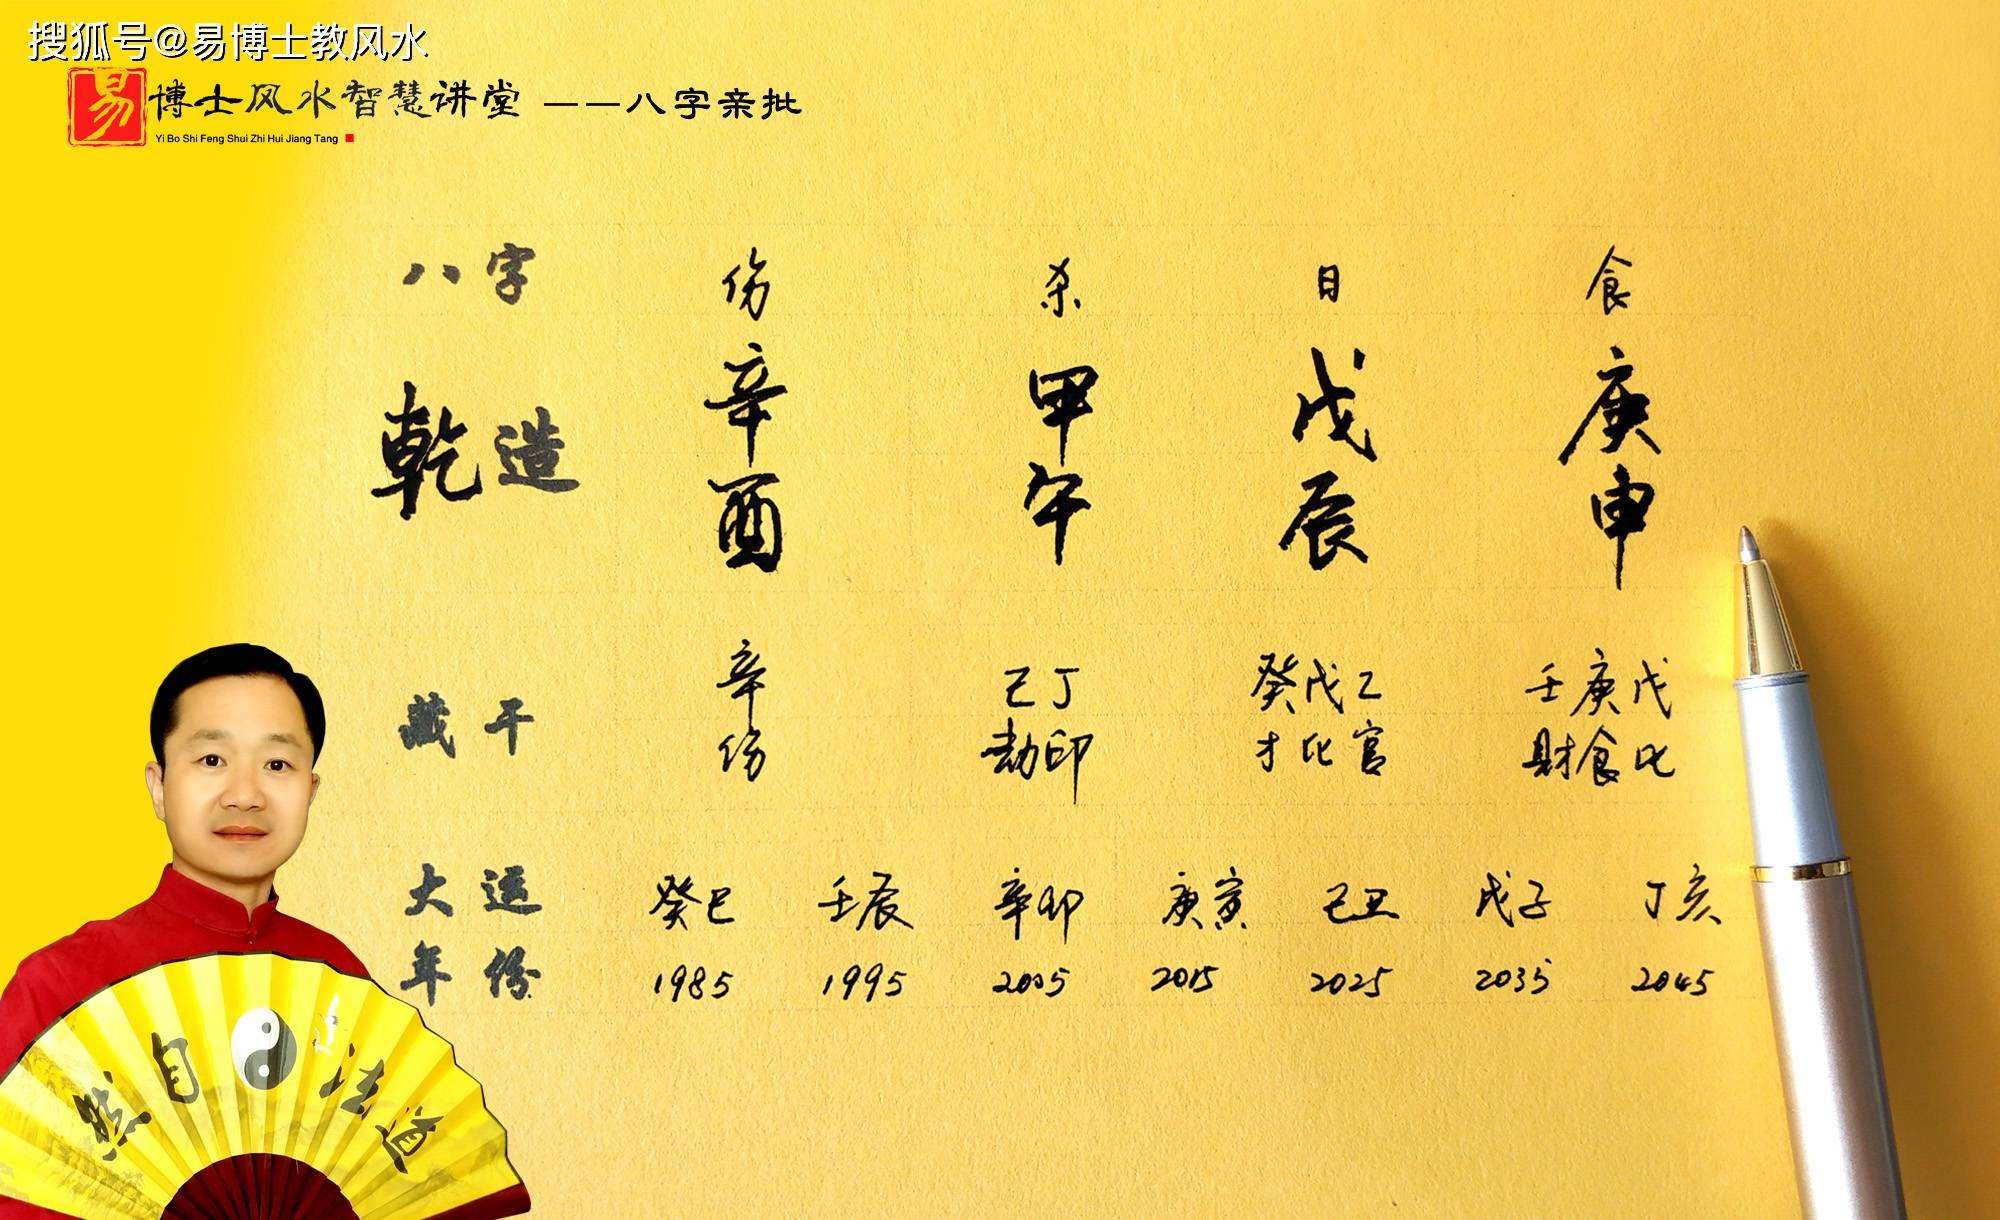 搜狐号@易博士教风水
易 博士风水智慧讲堂 ——八字亲批
Yi Bo Shi Feng Shui Zhi Hui Jiang Tang
八字 伤 杀 日 食
乾造 辛 甲 戊 庚
酉 午 辰 申
藏干 辛 己丁 癸戊乙 壬庚戊
伤 劫印 才比官 财食比
大运 癸巳 壬辰 辛卯 庚寅 己丑 戊子 丁亥
年份 1985 1995 2005 2015 2025 2035 2045
然自法道